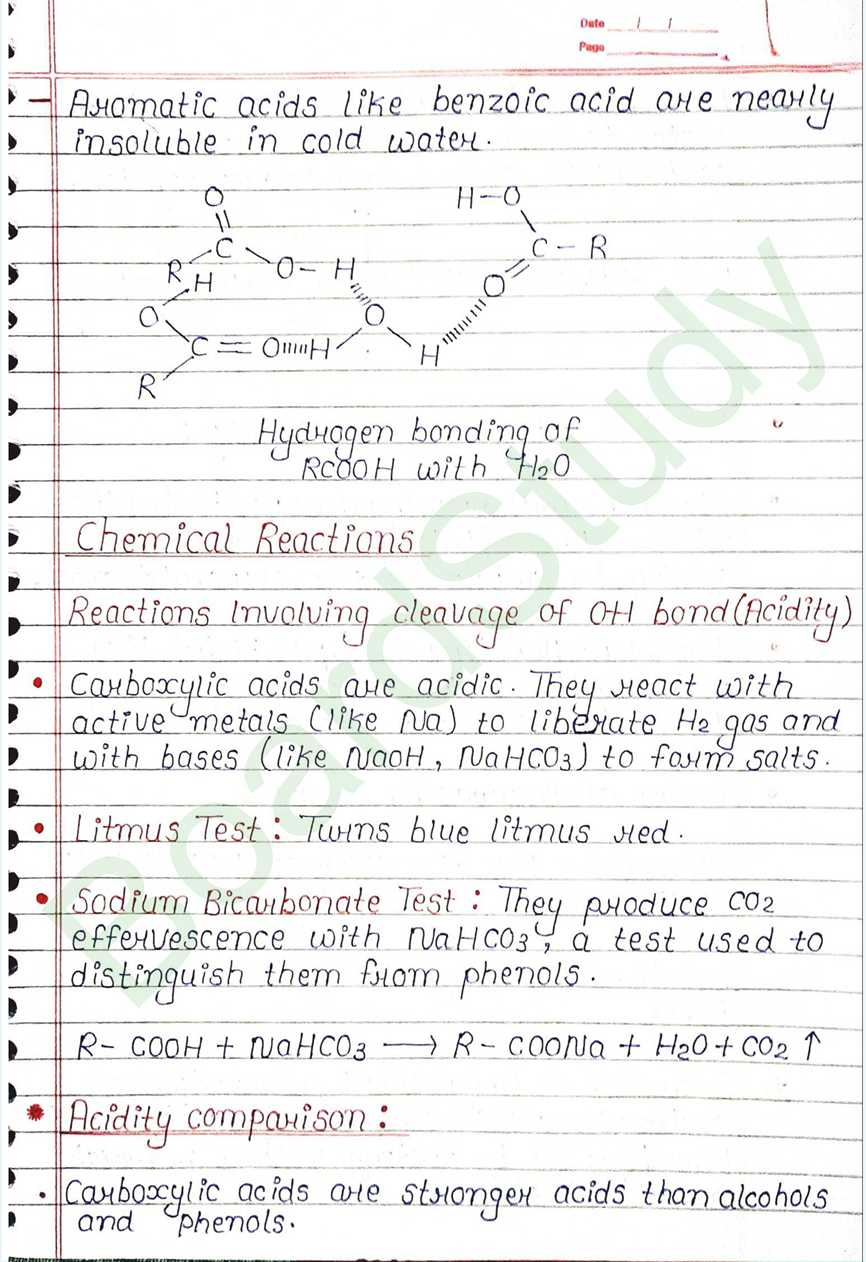 Date / /
Page
– Aromatic acids like benzoic acid are nearly
insoluble in cold water.
O H–O
C C – R
R H O – H O
O O
C = O H H
R
Hydrogen bonding of
RCOOH with H₂O
Chemical Reactions
Reactions Involving cleavage of OH bond (Acidity)
• Carboxylic acids are acidic. They react with
active metals (like Na) to liberate H₂ gas and
with bases (like NaOH, NaHCO₃) to form salts.
• Litmus Test : Turns blue litmus red.
• Sodium Bicarbonate Test : They produce CO₂
effervescence with NaHCO₃, a test used to
distinguish them from phenols.
R– COOH + NaHCO₃ ⟶ R – COONa + H₂O + CO₂ ↑
* Acidity comparison :
• Carboxylic acids are stronger acids than alcohols
and phenols.
BoardStudy